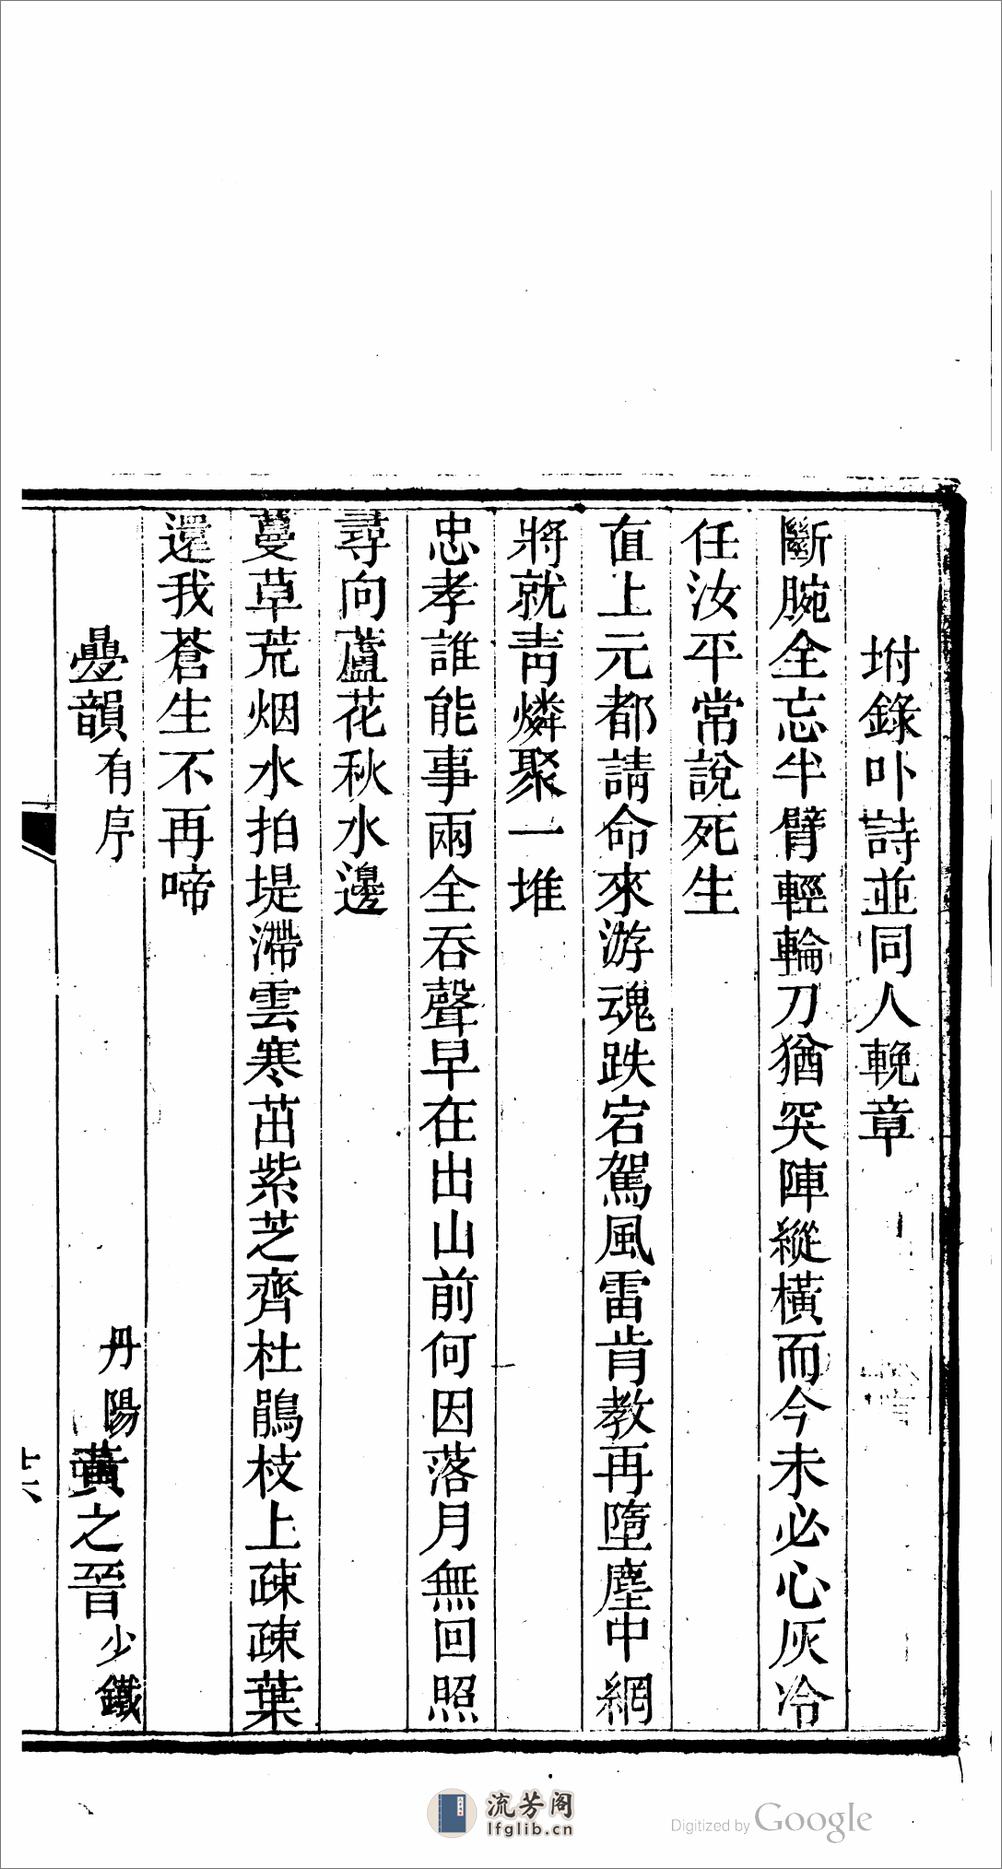 坿錄卟詩並同人輓章
斷腕全忘半臂輕輪刀猶突陣縱橫而今未必心灰冷
任汝平常說死生
直上元都請命來游魂跌宕駕風雷肯教再墮塵中網
將就靑燐聚一堆
忠孝誰能事兩全吞聲早在出山前何因落月無回照
尋向蘆花秋水邊
蔓草荒烟水拍堤滯雲寒茁紫芝齊杜鵑枝上疎疎葉
還我蒼生不再啼
疊韻有序 丹陽黃之晉少鐵
廿六
流芳阁
lfglib.cn
Digitized by Google